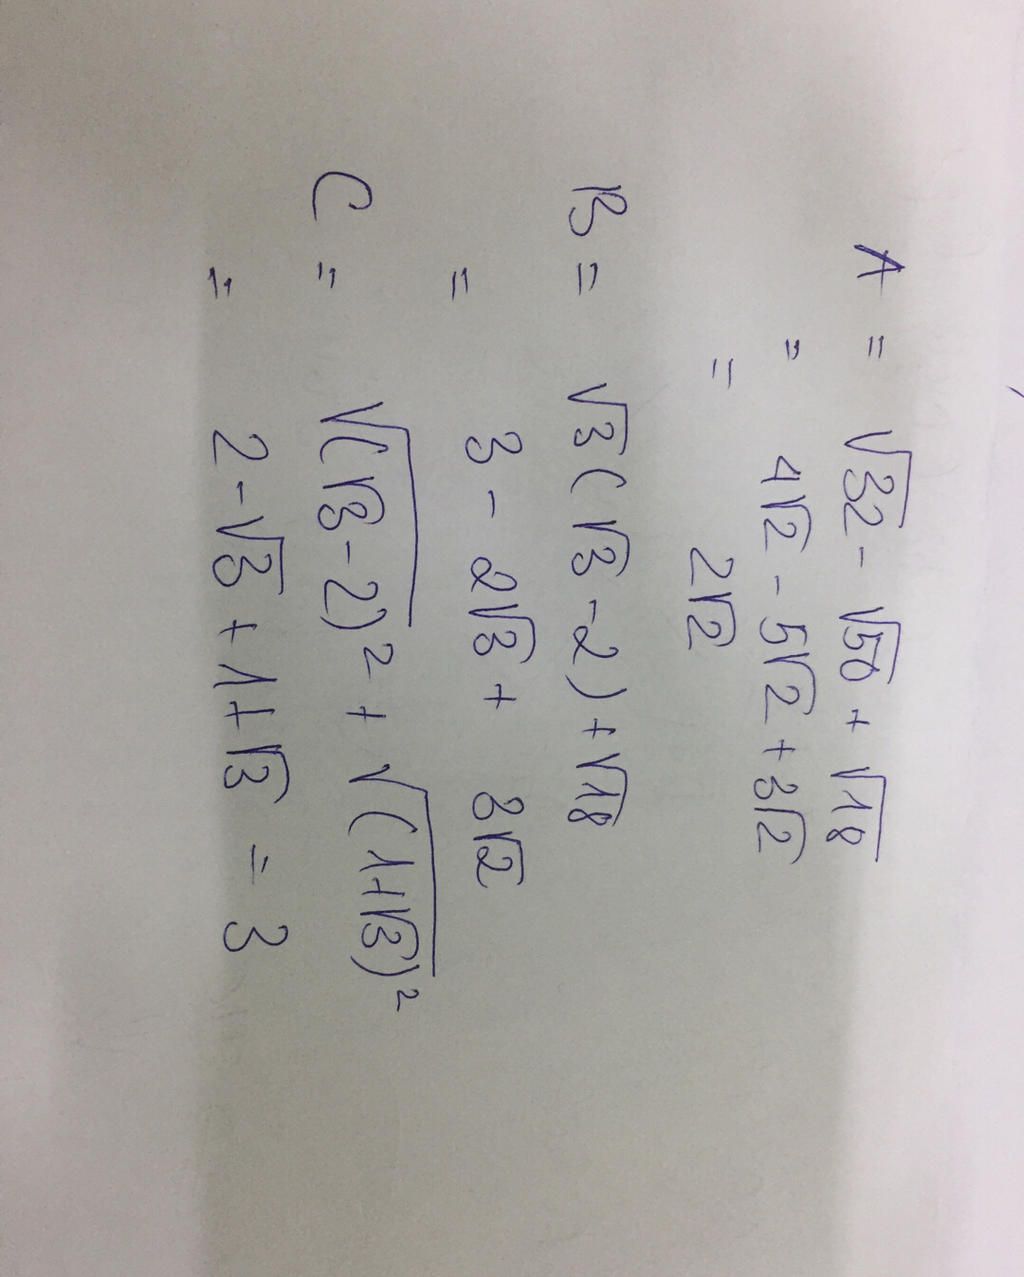 A = √32 - √50 + √18
= 4√2 - 5√2 + 3√2
= 2√2
B = √3(√3 - 2) + √18
= 3 - 2√3 + 3√2
C = √(√3 - 2)² + √(1+√3)²
= 2 - √3 + 1 + √3 = 3